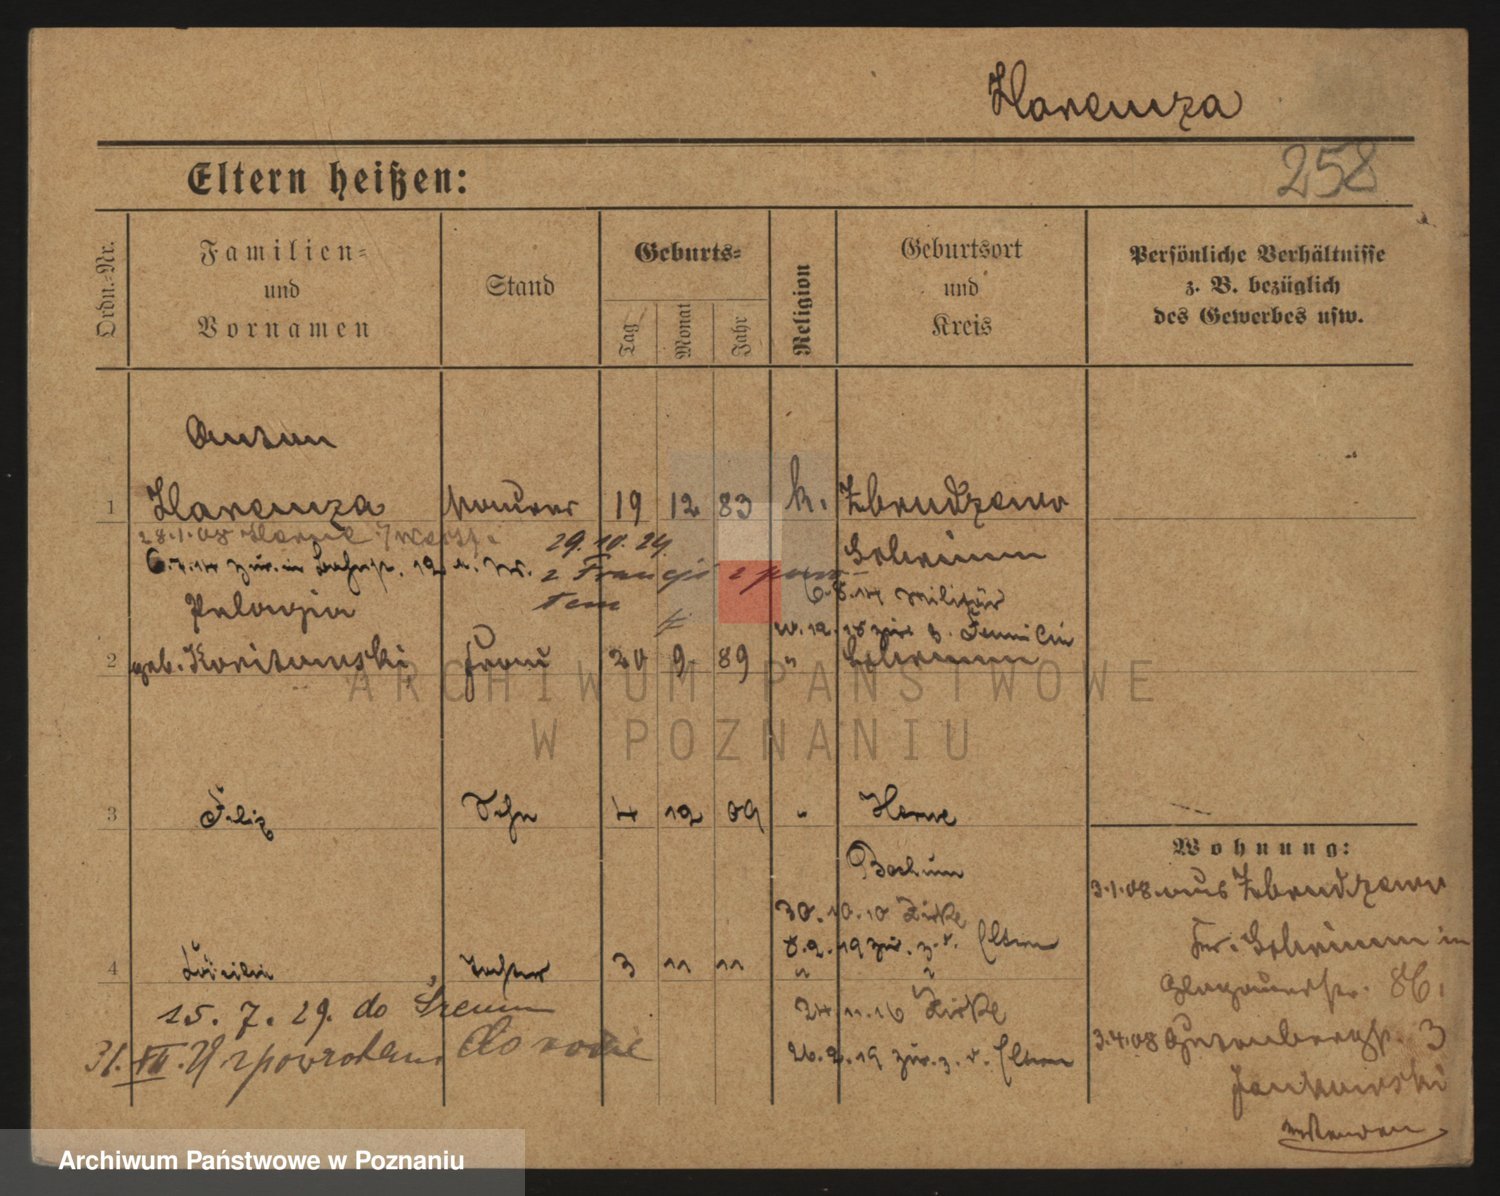 Haremza
258
Eltern heißen:
Ordn.-Nr.
Familien-
und
Vornamen
Stand
Geburts-
Tag
Monat
Jahr
Religion
Geburtsort
und
Kreis
Persönliche Verhältnisse
z. B. bezüglich
des Gewerbes usw.
Anton
1 Haremza Maurer 19 12 83 k. Zbrudzewo
28.1.08 Herne
29.10.24
Schrimm
6.7.14 zur. in
z Francji z
6.8.14 Militär
Pelagia
zur. z. Familie
2 geb. Frau 20 9 89 " Schrimm
ARCHIWUM PAŃSTWOWE
W POZNANIU
3 Felix Sohn 4 12 09 " Herne
Bochum
30.10.10 Zirke
8.2.19 zur. z. d. Eltern
4 Cäcilie Tochter 3 11 11 " "
15. 7. 29. do Śremu
24.11.16 Zirke
31. VII. do
26.2.19 zur. z. d. Eltern
Wohnung:
3.1.08 aus Zbrudzewo
Kr. Schrimm in
Glogauerstr. 86.
3.4.08 Gutenbergstr. 3
Jankowski
Archiwum Państwowe w Poznaniu